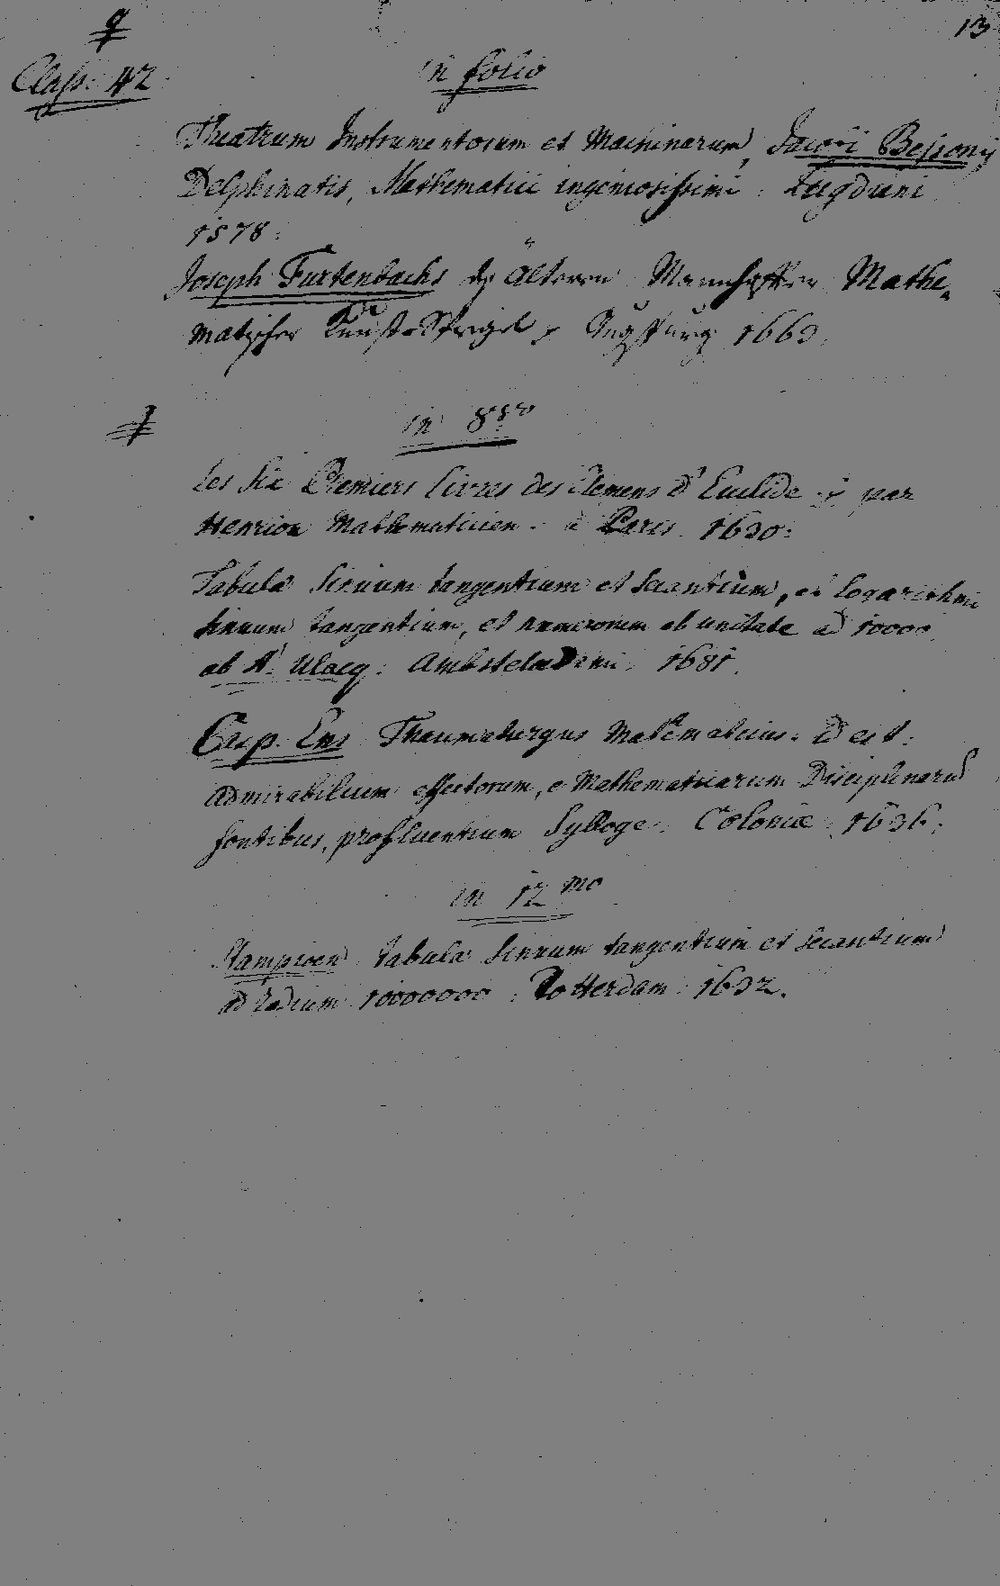 13
Class. 42
in folio
Theatrum Instrumentorum et Machinarum, Jacobi Bessony
Delphinatis, Mathematici ingeniosissimi. Lugduni
1578.
Joseph Furtenbachs des älteren Mannhaffter Mathe-
matischer Kunst-Spiegel, Augspurg 1663.
in 8vo
Les Six Premiers livres des Elemens d'Euclide par
Henrion Mathematicien. à Paris. 1630.
Tabula Sinuum tangentium et Secantium, et Logarithmi
sinuum tangentium, et numerorum ab unitate ad 10000.
ab A. Ulacq. Amstelodami. 1681.
Casp. Ens Thaumaturgus Mathematicus. id est.
admirabilium effectorum, e Mathematicarum Disciplinarum
fontibus, profluentium Sylloge. Coloniæ. 1636.
in 12mo
Stampioen tabula sinuum tangentium et secantium
ad radium 10000000. Rotterdam. 1632.